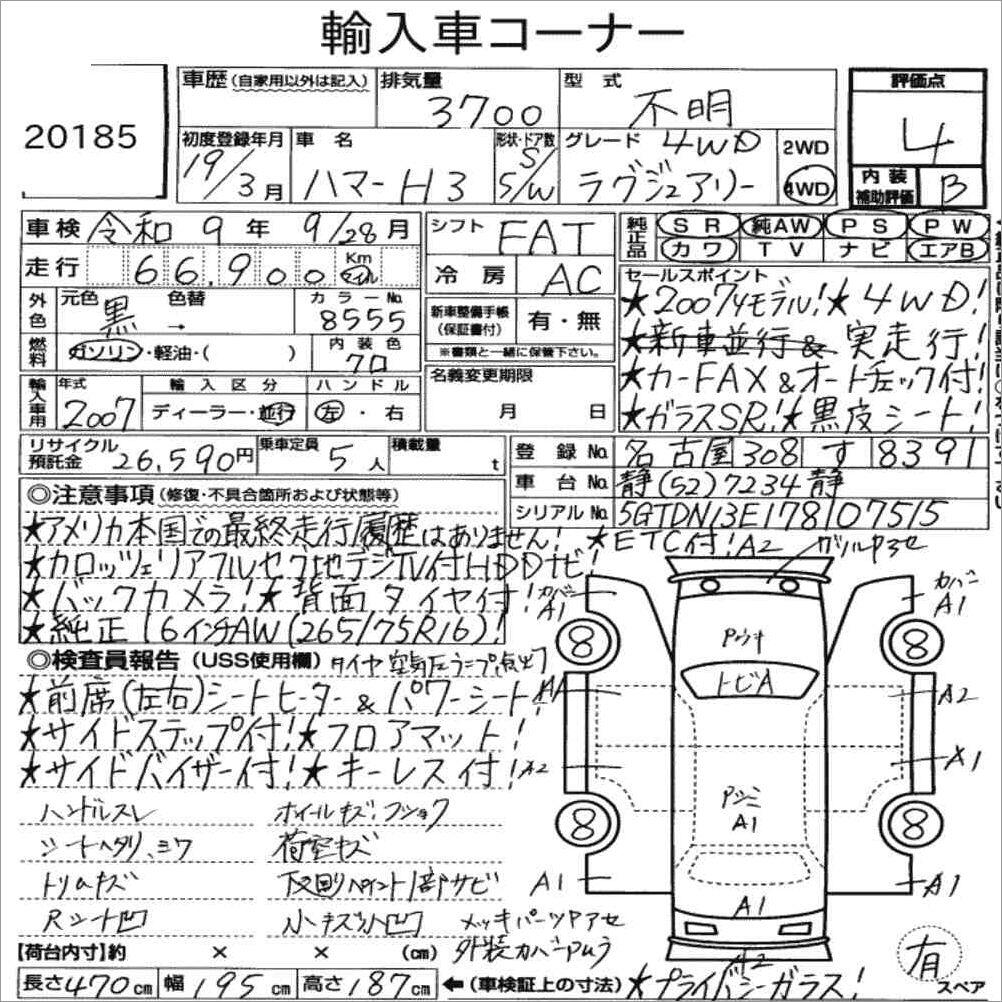 輸入車コーナー
20185
車歴(自家用以外は記入) 排気量 3700 型式 不明 評価点 4
初度登録年月 19/3月 車名 ハマーH3 形状・ドア数 5/S/W グレード 4WD ラグジュアリー 2WD 4WD 内装補助評価 B
車検 令和 9年 9/28月 シフト FAT 純正品 SR 純AW PS PW
走行 66,900 Km マイル 冷房 AC カワ TV ナビ エアB
外色 元色 黒 色替 → カラーNo. 8555 新車整備手帳(保証書付) 有・無
燃料 ガソリン・軽油・( ) 内装色 70 ※書類と一緒に保管下さい。
輸入車用 年式 2007 輸入区分 ディーラー・並行 ハンドル 左・右 名義変更期限 月 日
セールスポイント
★2007yモデル!★4WD!
★新車並行& 実走行!
★カーFAX&オートチェック付!
★ガラスSR!★黒皮シート!
リサイクル預託金 26,590円 乗車定員 5人 積載量 t 登録No. 名古屋 308 す 8391
車台No. 静(52)7234静
シリアルNo. 5GTDN13E178107515
◎注意事項(修復・不具合箇所および状態等)
★アメリカ本国での最終走行履歴はありません! ★ETC付!
★カロッツェリアフルセグ地デジTV付HDDナビ!
★バックカメラ!★背面タイヤ付!
★純正16インチAW(265/75R16)!
◎検査員報告(USS使用欄) タイヤ空気圧ランプ点出
★前席(左右)シートヒーター&パワーシート!
★サイドステップ付!★フロアマット!
★サイドバイザー付!★キーレス付!
ハンドルスレ ホイールキズ
シートヘタリ、シワ 荷室キズ
トリムキズ 下回りペイント1部サビ
Rシート凹 小キズ小凹 メッキパーツアセ
外装カバー
A2
カバーA1
カバーA1
8 8
トビA
A2
A2
A1
A1
8 8
A1 A1 A1
A2
【荷台内寸】約 × × (cm)
長さ470cm 幅195cm 高さ187cm ←(車検証上の寸法) ★プライバシーガラス!
有 スペア